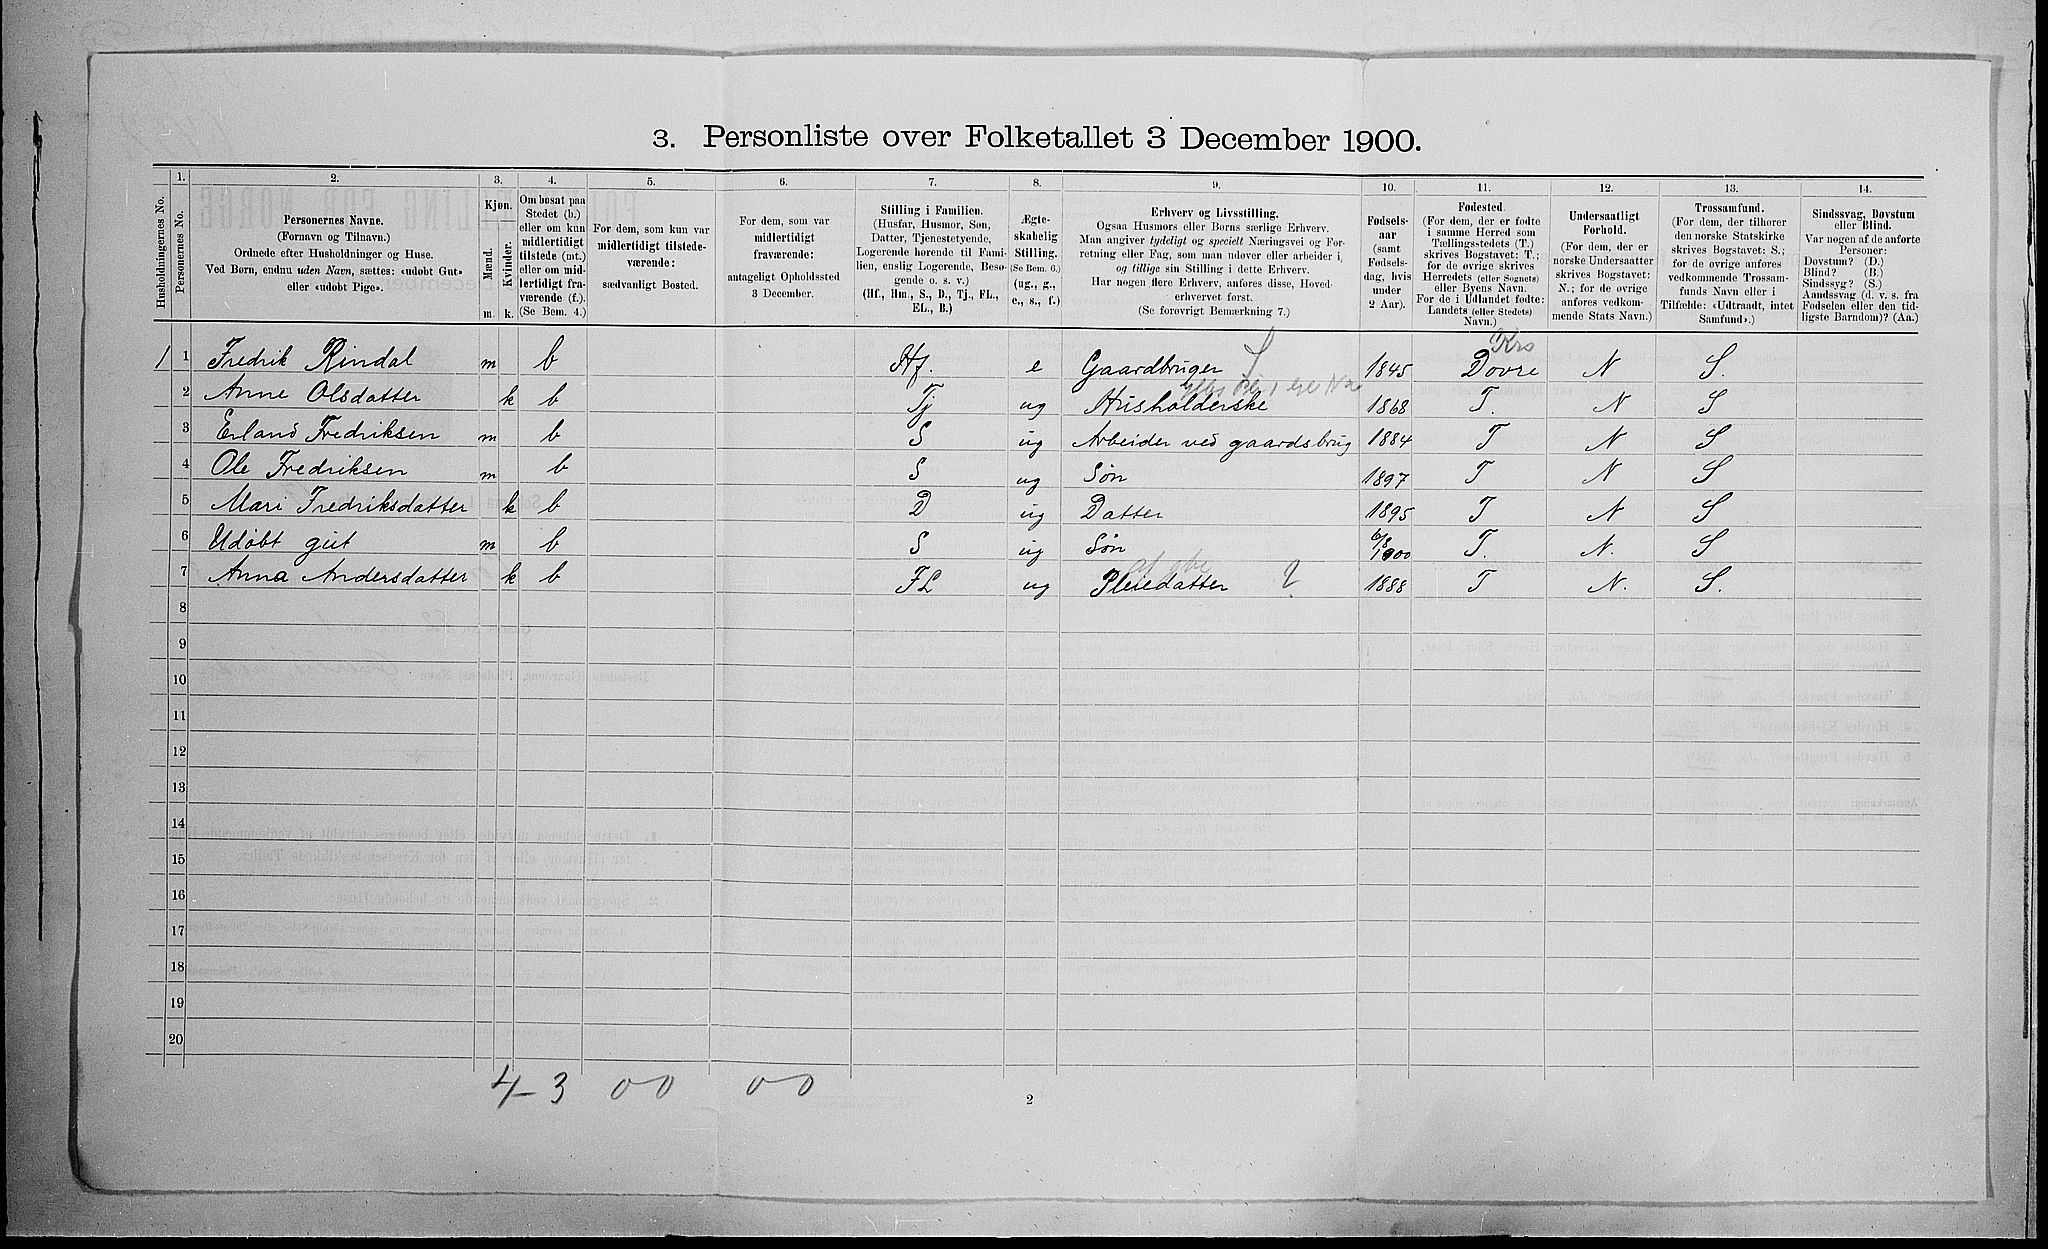 3. Personliste over Folketallet 3 December 1900.
1. 2. 3. 4. 5. 6. 7. 8. 9. 10. 11. 12. 13. 14.
Husholdningernes No.
Personernes No.
Personernes Navne.
(Fornavn og Tilnavn.)
Ordnede efter Husholdninger og Huse.
Ved Børn, endnu uden Navn, sættes: «udobt Gut»
eller «udobt Pige».
Kjøn.
Mænd.
Kvinder.
m. k.
Om bosat paa
Stedet (b.)
eller om kun
midlertidigt
tilstede (mt.)
eller om mid-
lertidigt fra-
værende (f.).
(Se Bem. 4.)
For dem, som kun var
midlertidigt tilstede-
værende:
sædvanligt Bosted.
For dem, som var
midlertidigt
fraværende:
antageligt Opholdssted
3 December.
Stilling i Familien.
(Husfar, Husmor, Søn,
Datter, Tjenestetyende,
Logerende hørende til Fami-
lien, enslig Logerende, Besø-
gende o. s. v.)
(Hf., Hm., S., D., Tj., FL.,
EL., B.)
Ægte-
skabelig
Stilling.
(Se Bem. 6.)
(ug., g.,
e., s., f.)
Erhverv og Livsstilling.
Ogsaa Husmors eller Børns særlige Erhverv.
Man angiver tydeligt og specielt Næringsvei og For-
retning eller Fag, som man udøver eller arbeider i,
og tillige sin Stilling i dette Erhverv.
Har nogen flere Erhverv, anføres disse, Hoved-
erhvervet først.
(Se forøvrigt Bemærkning 7.)
Fødsels-
aar
(samt
Fødsels-
dag, hvis
under
2 Aar).
Fødested.
(For dem, der er fødte
i samme Herred som
Tællingsstedets (T.)
skrives Bogstavet: T.;
for de øvrige skrives
Herredets (eller Sognets)
eller Byens Navn.
For de i Udlandet fødte:
Landets (eller Stedets)
Navn.)
Undersaatligt
Forhold.
(For dem, der er
norske Undersaatter
skrives Bogstavet:
N.; for de øvrige
anføres vedkom-
mende Stats Navn.)
Trossamfund.
(For dem, der tilhører
den norske Statskirke
skrives Bogstavet: S.;
for de øvrige anføres
vedkommende Trossam-
funds Navn eller i
Tilfælde: «Udtraadt, intet
Samfund».)
Sindssvag, Døvstum
eller Blind.
Var nogen af de anførte
Personer:
Døvstum? (D.)
Blind? (B.)
Sindssyg? (S.)
Aandssvag (d. v. s. fra
Fødselen eller den tid-
ligste Barndom)? (Aa.)
Krs
1 1 Fredrik Rindal m b Hf. e Gaardbruger S 1845 Dovre N S.
2 Anne Olsdatter k b Tj ug Husholderske 1868 T. N S
3 Erland Fredriksen m b S ug Arbeider ved gaardsbrug 1884 T N S
4 Ole Fredriksen m b S ug Søn 1897 T N S
5 Mari Fredriksdatter k b D ug Datter 1895 T N S
6 Udøbt gut m b S ug Søn 6/8 1900 T. N. S
7 Anna Andersdatter k b FL ug Pleiedatter 2 1888 T N. S.
8
9
10
11
12
13
14
15
16
17
18
19
20
4-3 00 00
2